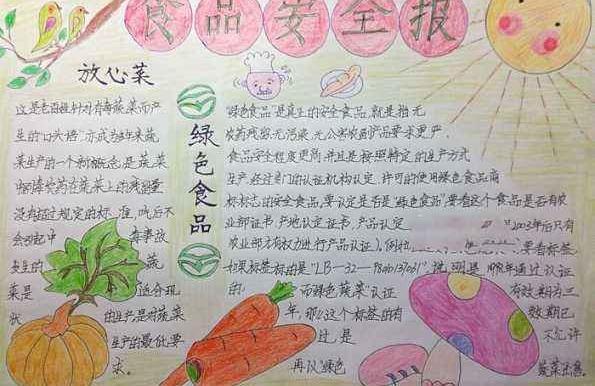 食品安全报
放心菜
这是老百姓针对有毒蔬菜而产
生的口头语,亦或为生来蔬
菜生产的一个新概念是蔬菜
中的农药在蔬菜上的残留量
没有超过规定的标准,吃后不
会引起中毒事故
发生的蔬
菜是适合现
状的生产是对蔬菜
生产的最低要
求。
绿色食品
"绿色食品"是真正的安全食品,就是指无
农药残留,无污染,无公害
食品安全程度更高,并且是按照特定的生产方式
生产,经过专门的认证机构认定,许可的使用绿色食品商
标标志的安全食品,要认定是否是"绿色食品"要看这个食品是否有农
业部证书,产地认定证书,产品认定
2003年后只有
农业部才有权力进行产品认证),例如
要看标签
如果标签标的是"LB-32-
说明是
年通过认证
的"绿色蔬菜"认证
有效期为三
年,那么这个标签的有
效期已
过,是
不允许
再以"绿色
蔬菜出售。